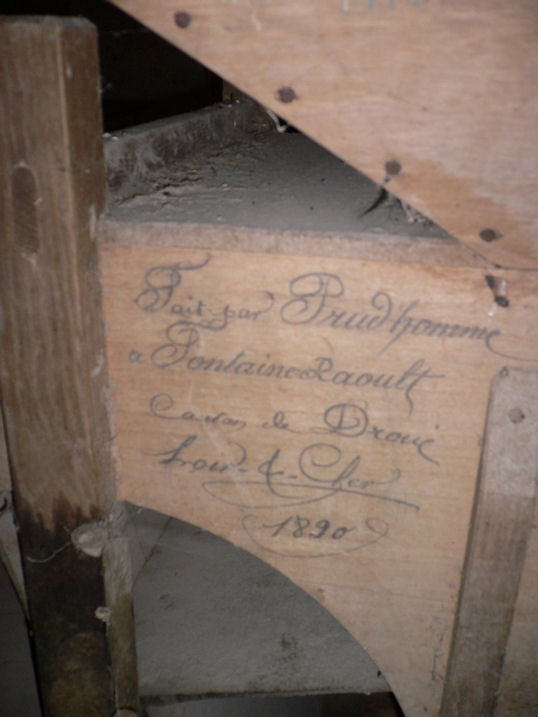 Fait par Prud'homme
a Fontaine Raoult
Canton de Droué
Loir-&-Cher
1890